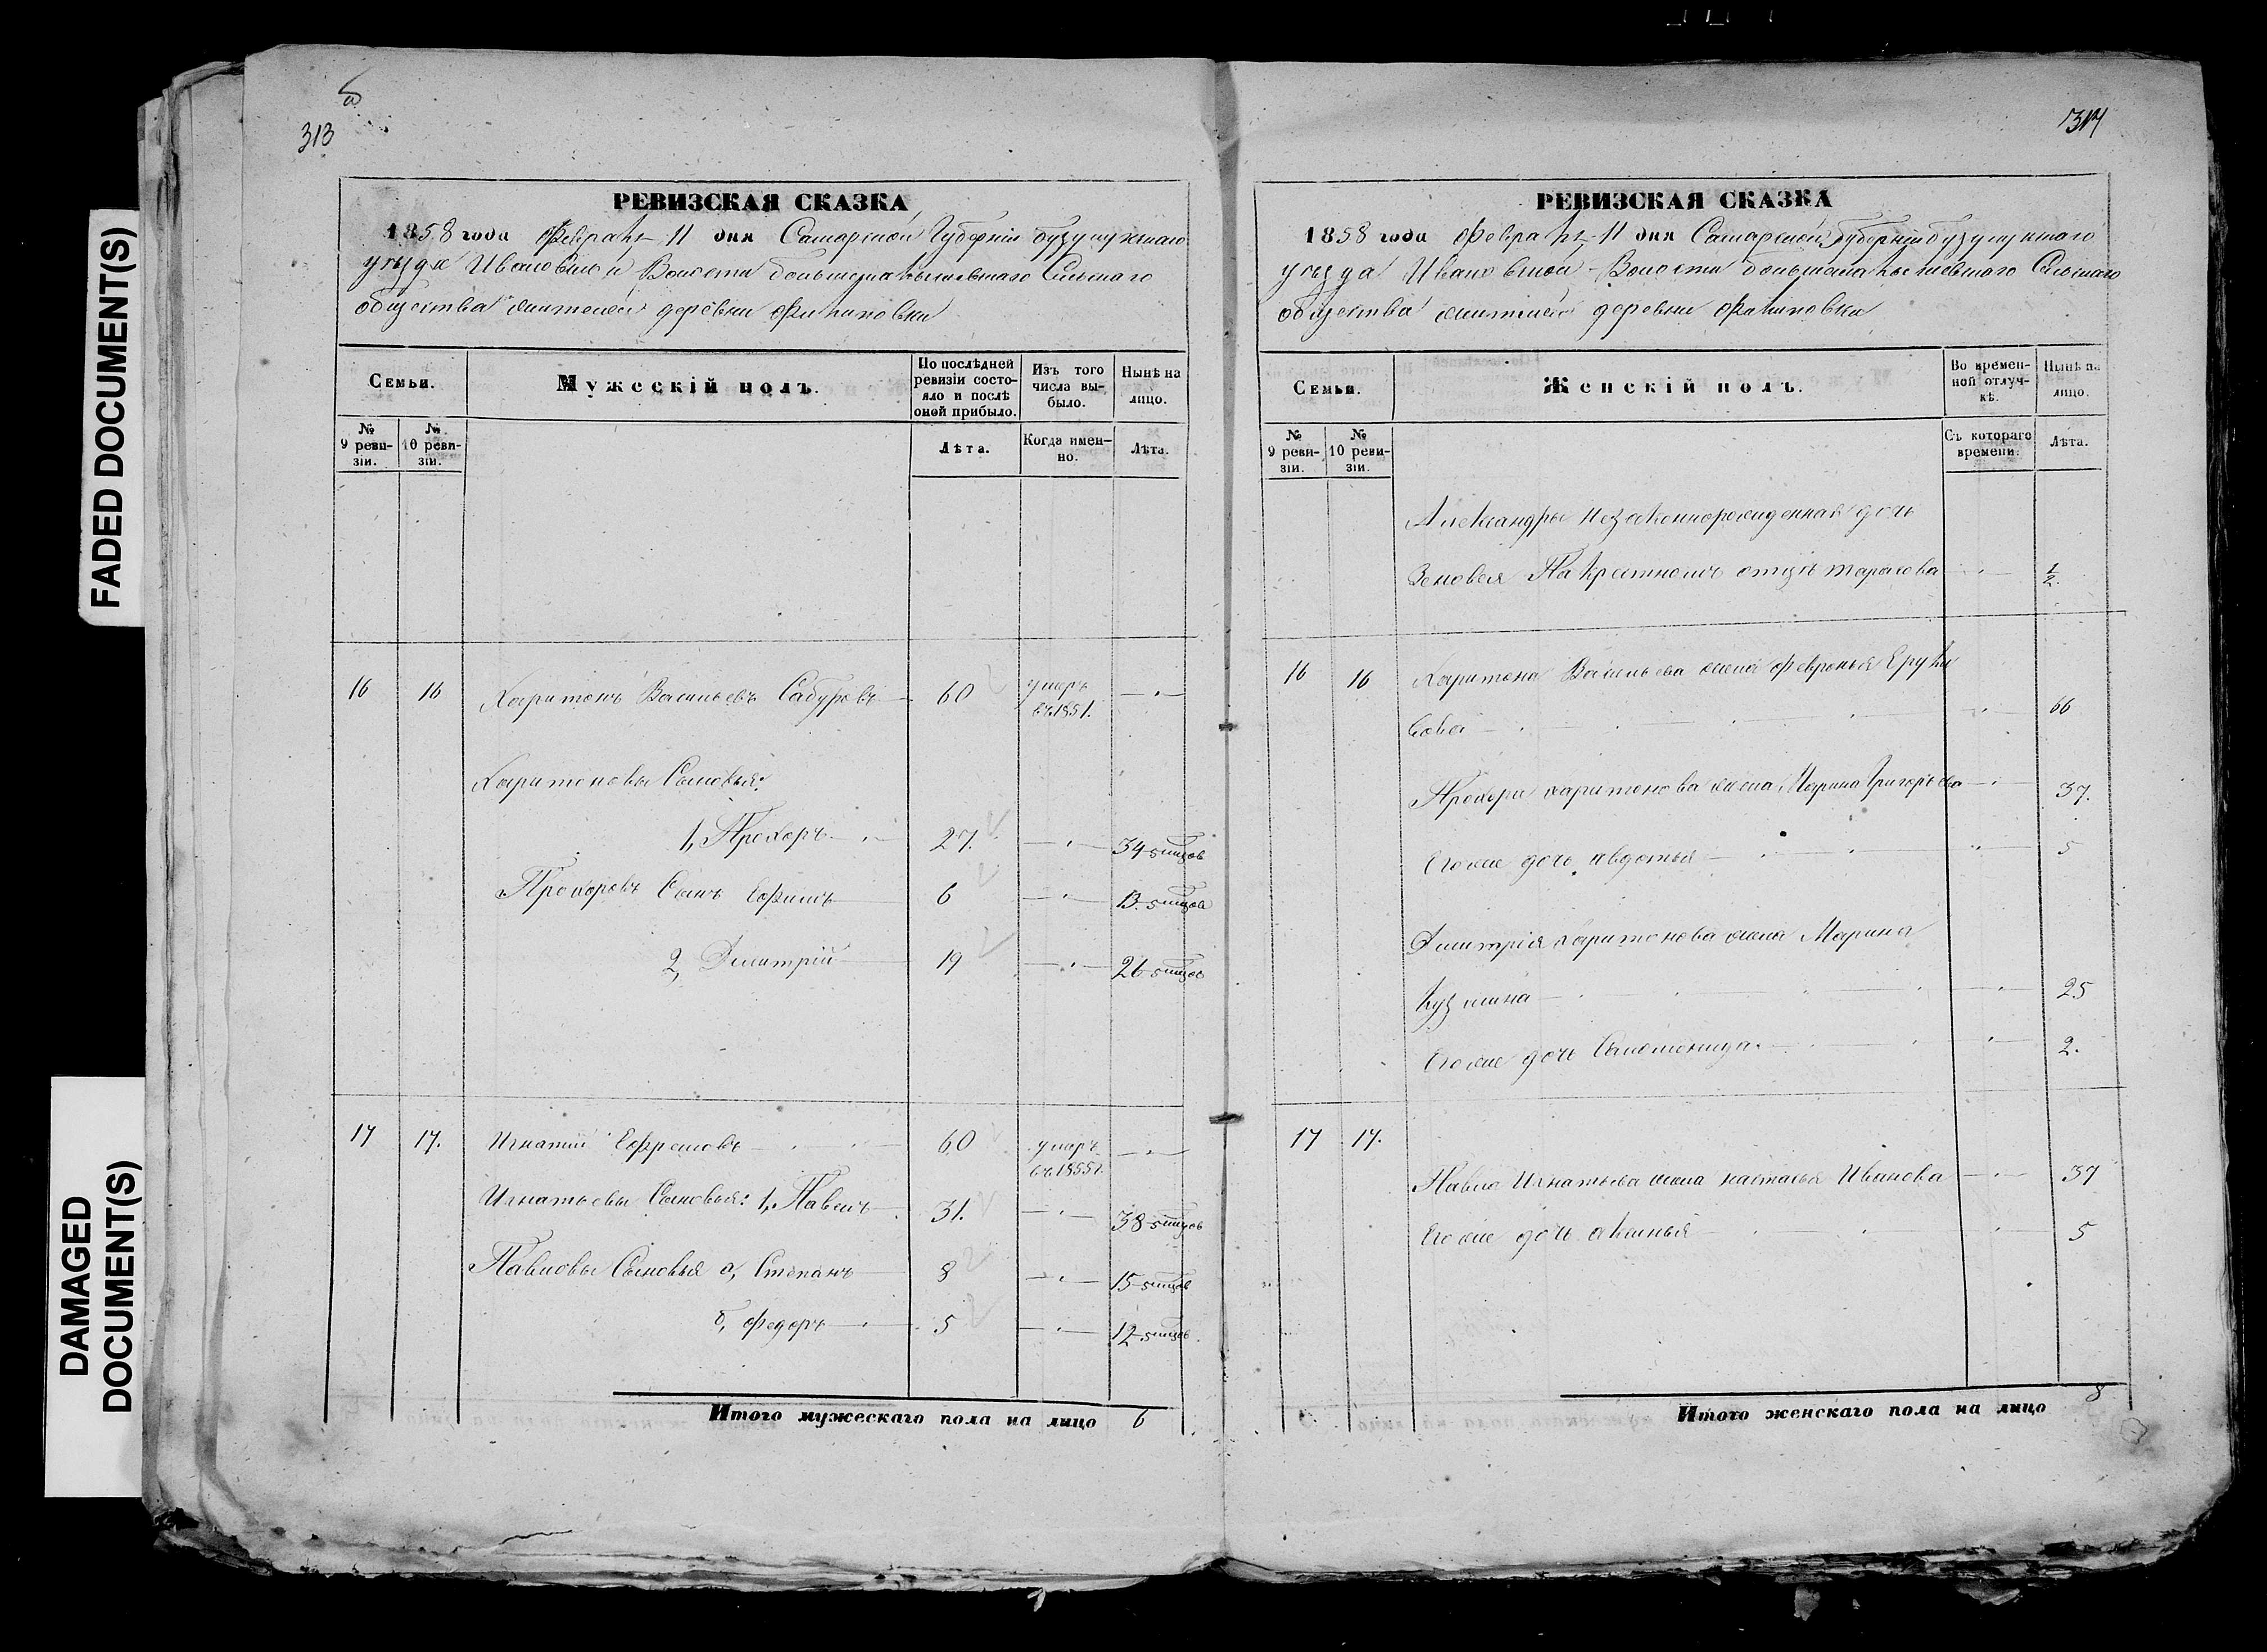 FADED DOCUMENT(S)
DAMAGED
DOCUMENT(S)
313
РЕВИЗСКАЯ СКАЗКА
1858 года Февраля 11 дня Самарской Губерніи бузулукскаго
уѣзда Ивановской Волости Сельскаго
общества жителей деревни Филиповки
Семьи.
Мужескій полъ.
По послѣдней ревизіи состояло и послѣ оной прибыло.
Изъ того числа выбыло.
Нынѣ на лицо.
№ 9 ревизіи.
№ 10 ревизіи.
Лѣта.
Когда именно.
Лѣта.
16 16 Харитонъ Васильевъ Сабуровъ 60 умеръ въ 1851.
Харитоновы Сыновья:
1, Прохоръ 27. 34
Прохоровъ Сынъ Ефимъ 6 13.
2, Дмитрій 19 26
17 17. Игнатій Ефремовъ 60 умеръ въ 1855 г.
Игнатьевы Сыновья: 1, Павелъ 31. 38
Павловы Сыновья а, Степанъ 8 15
б, Федоръ 5 12
Итого мужескаго пола на лицо 6
314
РЕВИЗСКАЯ СКАЗКА
1858 года Февраля 11 дня Самарской губерніи бузулукскаго
уѣзда Ивановской Волости Сельскаго
общества жителей деревни Филиповки
Семьи.
Женскій полъ.
Во временной отлучкѣ.
Нынѣ на лицо.
№ 9 ревизіи.
№ 10 ревизіи.
Съ котораго времени.
Лѣта.
Александры незаконнорожденная дочь
Зеновея По крестномъ отцѣ Тарасова 1/2.
16 16 Харитона Васильева жена Февронья
66
Прохора харитонова жена Марина Григорьева 37.
Егоже дочь авдотья 5
Дмитрія харитонова жена Марина
кузмина 25
Егоже дочь Саломонида. 2.
17 17.
Павла Игнатьева жена настасья Иванова 37
Егоже дочь аксинья 5
Итого женскаго пола на лицо 8